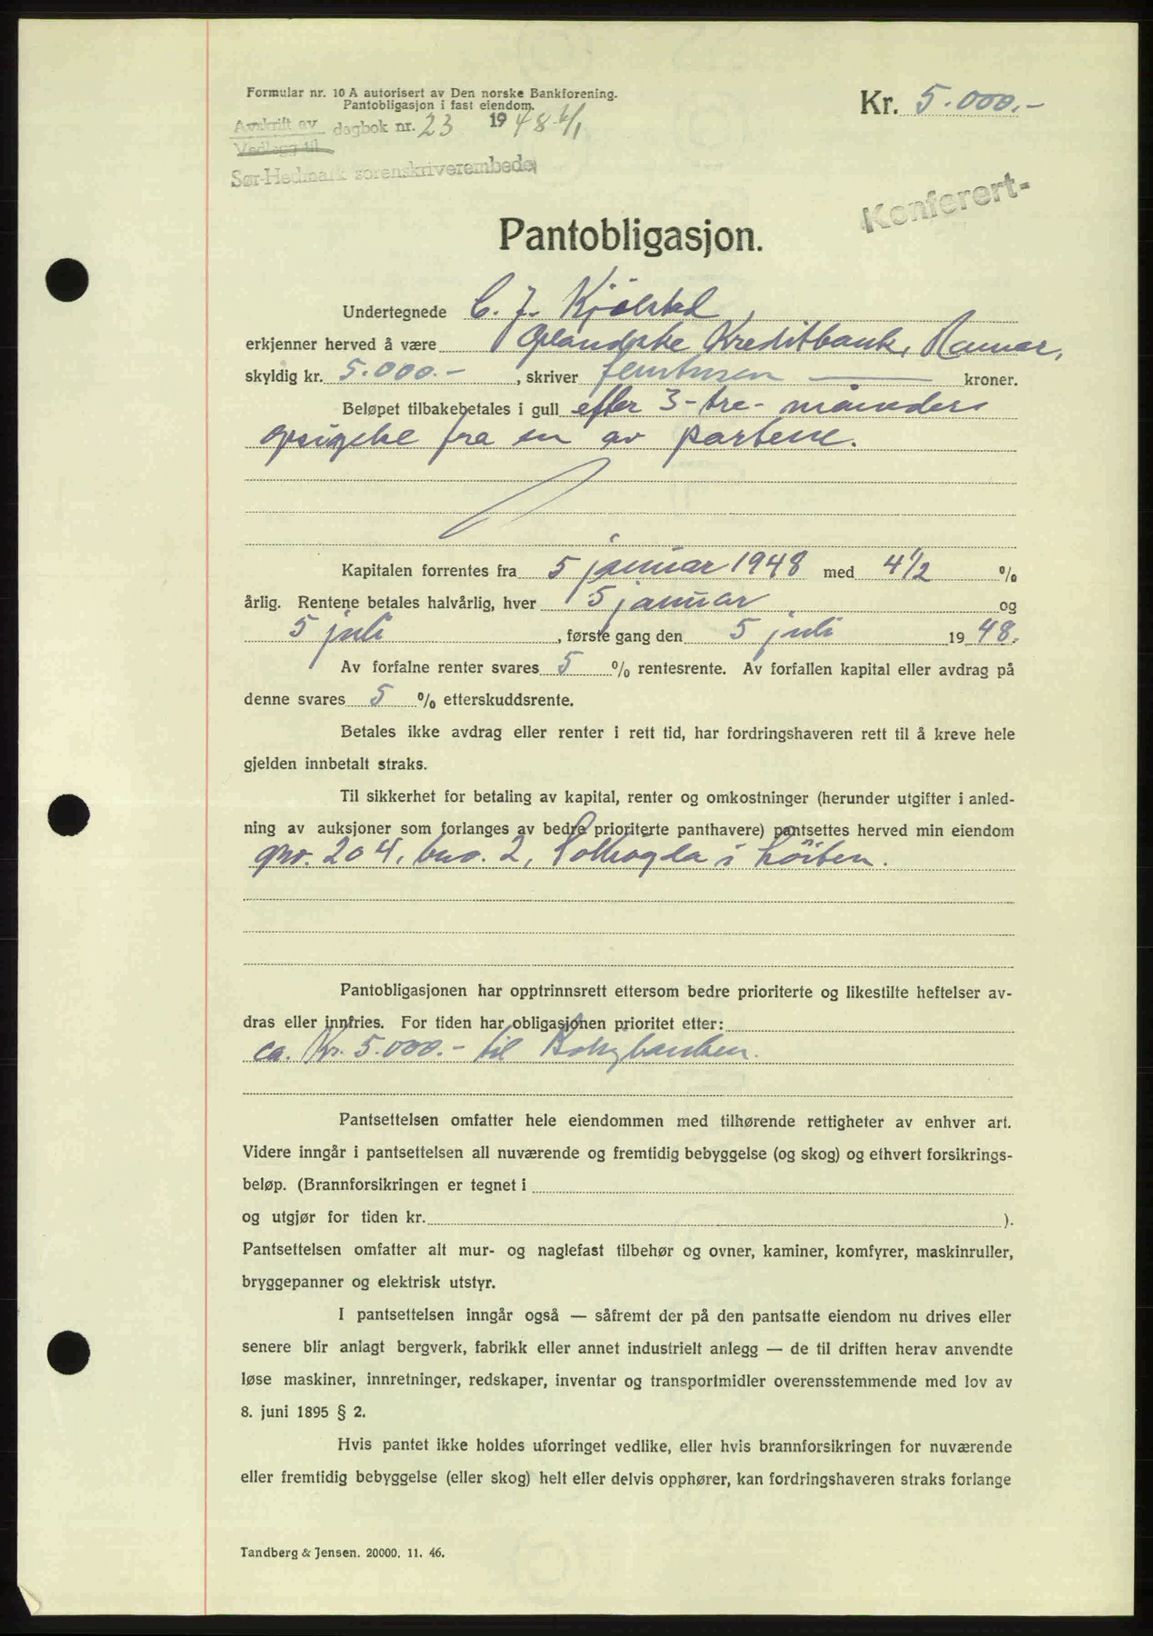 Formular nr. 10 A autorisert av Den norske Bankforening.
Pantobligasjon i fast eiendom.
Kr. 5.000.-
Avskrift av dagbok nr. 23 1948 6/1
Vedlegg til
Sør-Hedmark sorenskriverembede
Konferert-
Pantobligasjon.
Undertegnede C. J. Kjølstad,
erkjenner herved å være Oplandske Kreditbank, Hamar,
skyldig kr. 5.000.- , skriver femtusen kroner.
Beløpet tilbakebetales i gull efter 3-tre- måneders
opsigelse fra en av partene.
Kapitalen forrentes fra 5 januar 1948 med 4 1/2 %
årlig. Rentene betales halvårlig, hver 5 januar og
5 juli , første gang den 5 juli 1948.
Av forfalne renter svares 5 % rentesrente. Av forfallen kapital eller avdrag på
denne svares 5 % etterskuddsrente.
Betales ikke avdrag eller renter i rett tid, har fordringshaveren rett til å kreve hele
gjelden innbetalt straks.
Til sikkerhet for betaling av kapital, renter og omkostninger (herunder utgifter i anled-
ning av auksjoner som forlanges av bedre prioriterte panthavere) pantsettes herved min eiendom
gno. 204, bno. 2, Solhøgda i Löiten.
Pantobligasjonen har opptrinnsrett ettersom bedre prioriterte og likestilte heftelser av-
dras eller innfries. For tiden har obligasjonen prioritet etter:
ca. Kr. 5.000.- til
Pantsettelsen omfatter hele eiendommen med tilhørende rettigheter av enhver art.
Videre inngår i pantsettelsen all nuværende og fremtidig bebyggelse (og skog) og ethvert forsikrings-
beløp. (Brannforsikringen er tegnet i
og utgjør for tiden kr. ).
Pantsettelsen omfatter alt mur- og naglefast tilbehør og ovner, kaminer, komfyrer, maskinruller,
bryggepanner og elektrisk utstyr.
I pantsettelsen inngår også — såfremt der på den pantsatte eiendom nu drives eller
senere blir anlagt bergverk, fabrikk eller annet industrielt anlegg — de til driften herav anvendte
løse maskiner, innretninger, redskaper, inventar og transportmidler overensstemmende med lov av
8. juni 1895 § 2.
Hvis pantet ikke holdes uforringet vedlike, eller hvis brannforsikringen for nuværende
eller fremtidig bebyggelse (eller skog) helt eller delvis opphører, kan fordringshaveren straks forlange
Tandberg & Jensen. 20000. 11. 46.